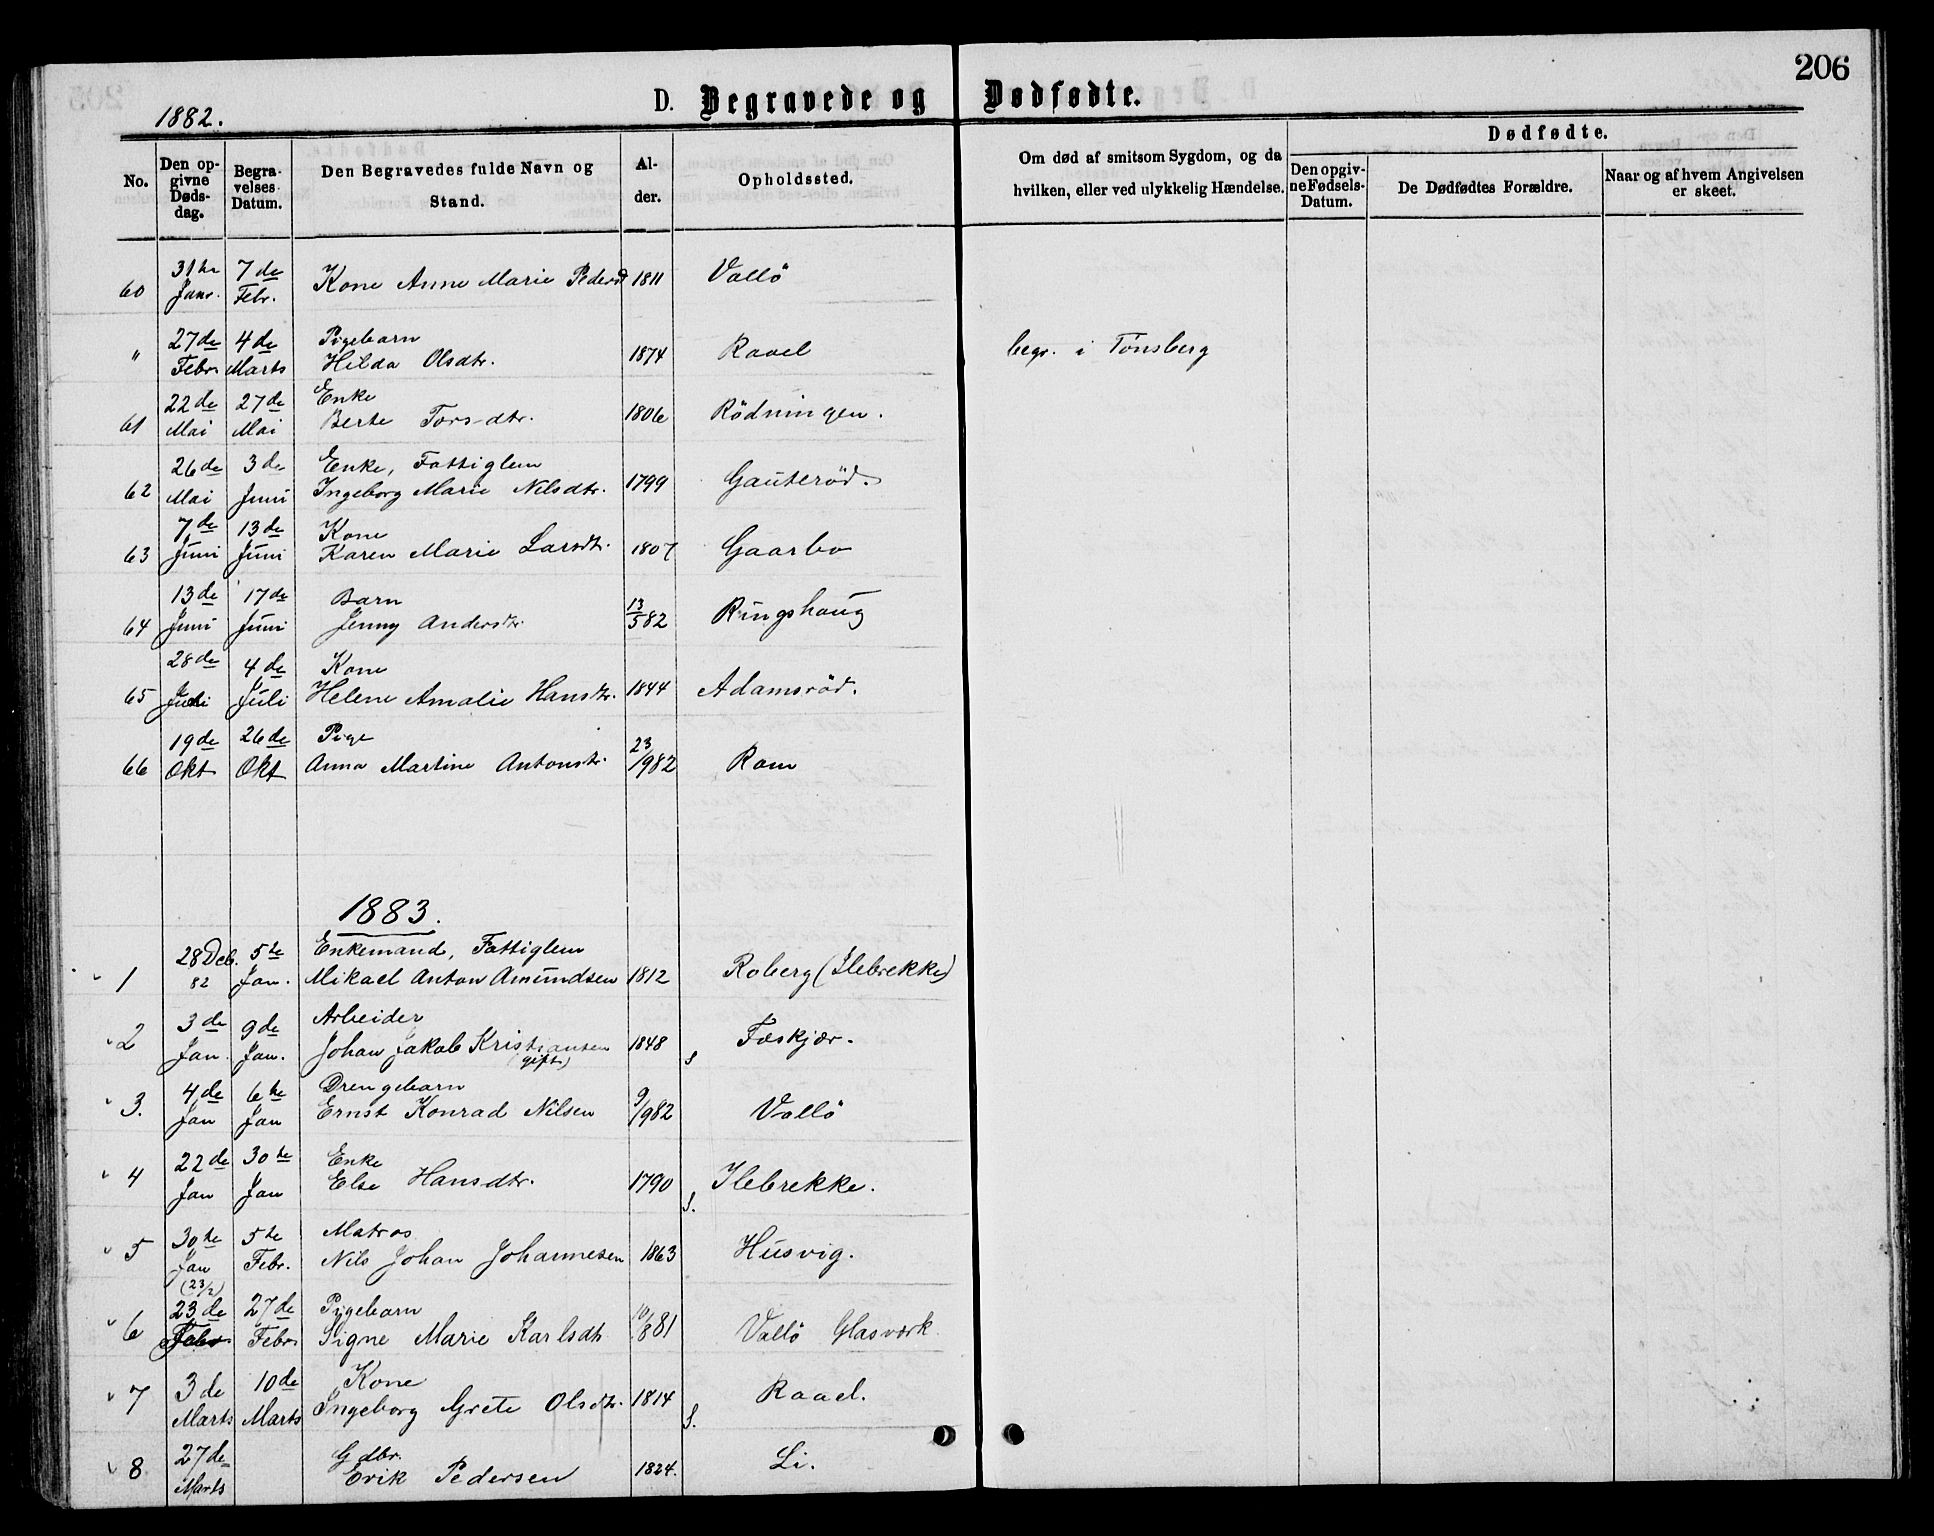 206
1882.
D. Begravede og Dødfødte.
No.
Den opgivne Dødsdag.
Begravelses Datum.
Den Begravedes fulde Navn og Stand.
Alder.
Opholdssted.
Om død af smitsom Sygdom, og da hvilken, eller ved ulykkelig Hændelse.
Dødfødte.
Den opgivne Fødsels-Datum.
De Dødfødtes Forældre.
Naar og af hvem Angivelsen er skeet.
60 31te Janr. 7de Febr. Kone Anne Marie Pedersd 1811 Vallö
" 27de Febr 4de Marts Pigebarn Hilda Olsdtr. 1874 Raael begr. i Tönsberg
61 22de Mai 27de Mai Enke Berte Torsdtr. 1806 Rödningen.
62 26de Mai 3de Juni Enke, Fattiglem Ingeborg Marie Nilsdtr. 1799 Gauteröd.
63 7de Juni 13de Juni Kone Karen Marie Larsdtr. 1807 Gaarbo
64 13de Juni 17de Juni Barn Jenny Andersdtr 13/5 82 Ringshaug
65 28de Juni 4de Juli Kone Helene Amalie Hansdtr. 1844 Adamsröd.
66 19de Okt 26de Okt Pige Anna Martine Antonsdtr. 23/9 82 Ram
1883.
1 28 Deb. 82 5te Jan. Enkemand, Fattiglem Mikael Anton Amundsen 1812 Roberg (Ilebrekke)
2 3de Jan. 9de Jan. Arbeider Johan Jakob Kristiansen (gift) 1848 S Foskjær.
3. 4de Jan 6te Jan Drengebarn Ernst Konrad Nilsen 9/9 82 Vallö
4 22de Jan 30te Jan Enke Else Hansdtr. 1790 S. Ilebrekke.
5 30te Jan 5te Febr. Matros Nils Johan Johannesen 1863 Husvig.
6 (23/2) 23de Febr 27de Febr Pigebarn Signe Marie Karlsdtr 10/8 81 Vallö Glasværk
7 3de Marts 10de Marts Kone Ingeborg Grete Olsdtr. 1814 S. Raael.
8 27de Marts Gdbr. Erik Pedersen 1824. Li.